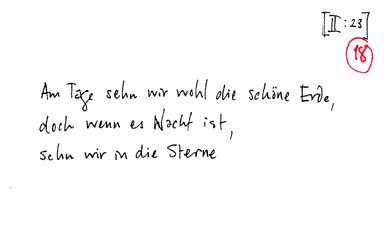 [II:23]
18
Am Tage sehn wir wohl die schöne Erde,
doch wenn es Nacht ist,
sehn wir in die Sterne